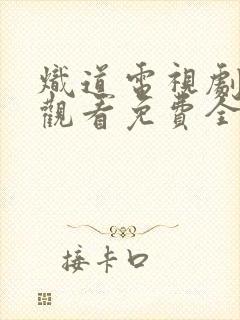 熾道電視劇
觀看免費全
接卡口